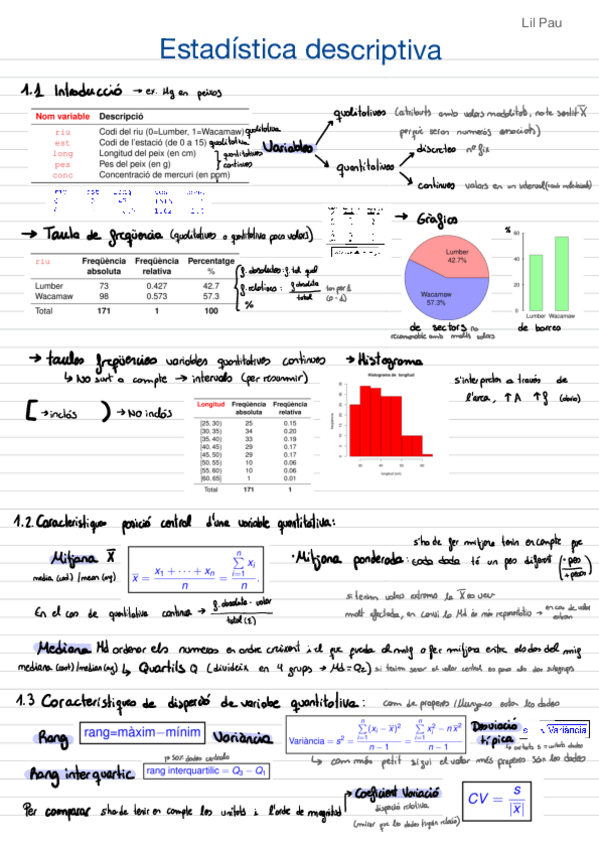 Lil Pau
Estadística descriptiva
1.1 Introducció → ex. Hg en peixos
Nom variable Descripció
riu Codi del riu (0=Lumber, 1=Wacamaw) qualitativa
est Codi de l'estació (de 0 a 15) qualitativa
long Longitud del peix (en cm)
pes Pes del peix (en g)
conc Concentració de mercuri (en ppm)
quantitatives continues
Variables
qualitatives (atributs amb valors modalitats, no té sentit x̄
perquè seran numeros associats)
quantitatives
discretes nº fix
continues valors en un interval
→ Taula de freqüència (qualitatives o quantitativa pocs valors)
riu Freqüència absoluta Freqüència relativa Percentatge %
Lumber 73 0.427 42.7
Wacamaw 98 0.573 57.3
Total 171 1 100
f. absolutes: f. tal qual
f. relatives: f. absoluta / total
tan per 1 (0-1)
%
→ Gràfics
Lumber
42.7%
Wacamaw
57.3%
%
60
40
20
0
Lumber Wacamaw
de sectors no
recomanable amb molts valors
de barres
→ taules freqüències variables quantitatives continues
↳ No surt a compte → intervals (per resumir)
[ → inclòs ) → NO inclòs
Longitud Freqüència absoluta Freqüència relativa
[25, 30) 25 0.15
[30, 35) 34 0.20
[35, 40) 33 0.19
[40, 45) 29 0.17
[45, 50) 29 0.17
[50, 55) 10 0.06
[55, 60) 10 0.06
[60, 65] 1 0.01
Total 171 1
→ Histograma
Histograma de longitud
s'interpreta a través de
l'àrea, ↑A ↑f (obvio)
1.2. Característiques posició central d'una variable quantitativa:
Mitjana X̄
media (cast) / mean (ang)
x̄ = x₁ + ··· + xₙ / n = Σ xᵢ / n .
n
i=1
· Mitjana ponderada: cada dada té un pes diferent (- pes / + pesos)
s'ha de fer mitjana tenin en compte pes
si tenim valors extrems la x̄ es veu
molt afectada, en canvi la Md és més representativa → en cas de valors extrem
En el cas de quantitativa continua → f. absoluta · valor / total (Σ)
Mediana Md ordenar els numeros en ordre creixent i el que queda al mig o fer mitjana entre els dos del mig
mediana (cast) / median (ag) ↳ Quartils Q (divideix en 4 grups → Md = Q₂)
1.3 Característiques de dispersió de variable quantitativa: com de propers / llunyanes estan les dades
Rang rang=màxim−mínim
Variància
Variància = s² = Σ(xᵢ − x̄)² / n − 1 = Σ xᵢ² − n x̄² / n − 1
n
i=1
Desviació típica s = √Variància
↳ unitats s = unitats dades
↳ com més petit sigui el valor més properes són les dades
Rang interquartic rang interquartilic = Q₃ − Q₁
Per comparar s'ha de tenir en compte les unitats i l'ordre de magnitud
→ Coeficient Variació
dispersió relativa
CV = s / |x̄|